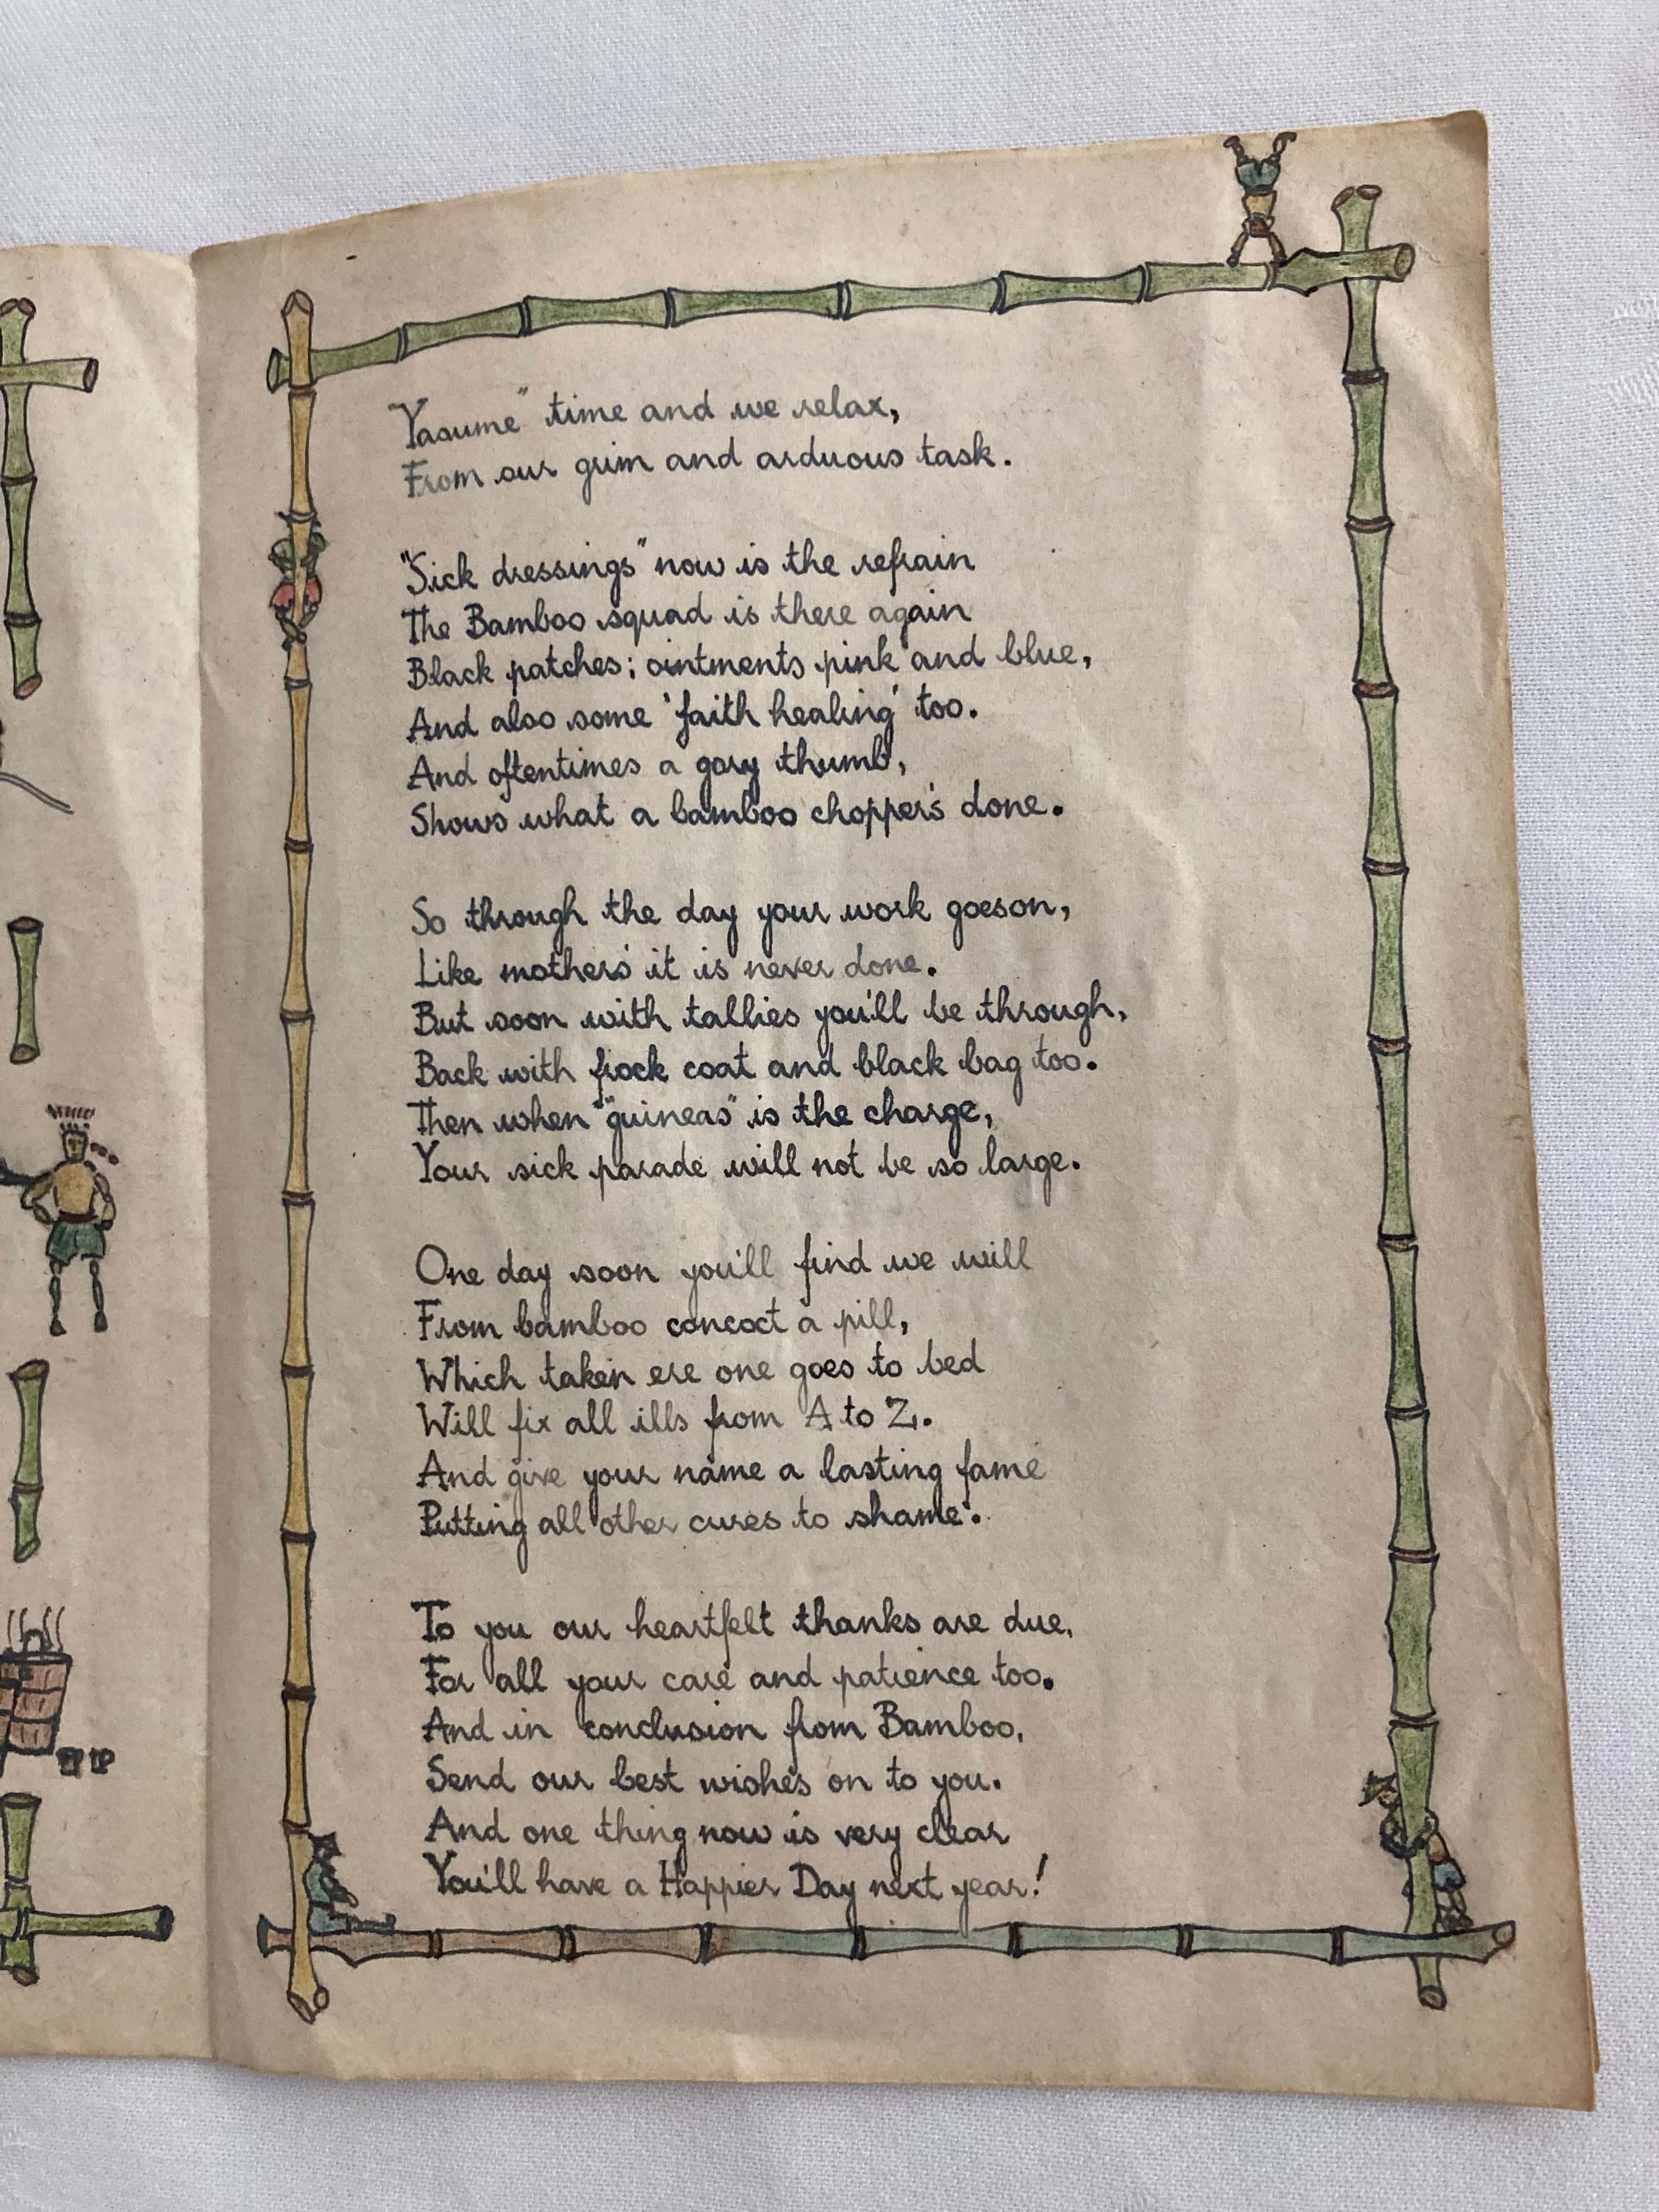 Yasume" time and we relax,
From our grim and arduous task.
"Sick dressings" now is the refrain
The Bamboo squad is there again
Black patches; ointments pink and blue,
And also some 'faith healing' too.
And oftentimes a gory thumb,
Shows what a bamboo chopper's done.
So through the day your work goeson,
Like mothers' it is never done.
But soon with tallies you'll be through,
Back with frock coat and black bag too.
Then when "guineas" is the charge,
Your sick parade will not be so large.
One day soon you'll find we will
From bamboo concoct a pill,
Which taken ere one goes to bed
Will fix all ills from A to Z.
And give your name a lasting fame
Putting all other cures to shame.
To you our heartfelt thanks are due,
For all your care and patience too.
And in conclusion from Bamboo,
Send our best wishes on to you.
And one thing now is very clear
You'll have a Happier Day next year!